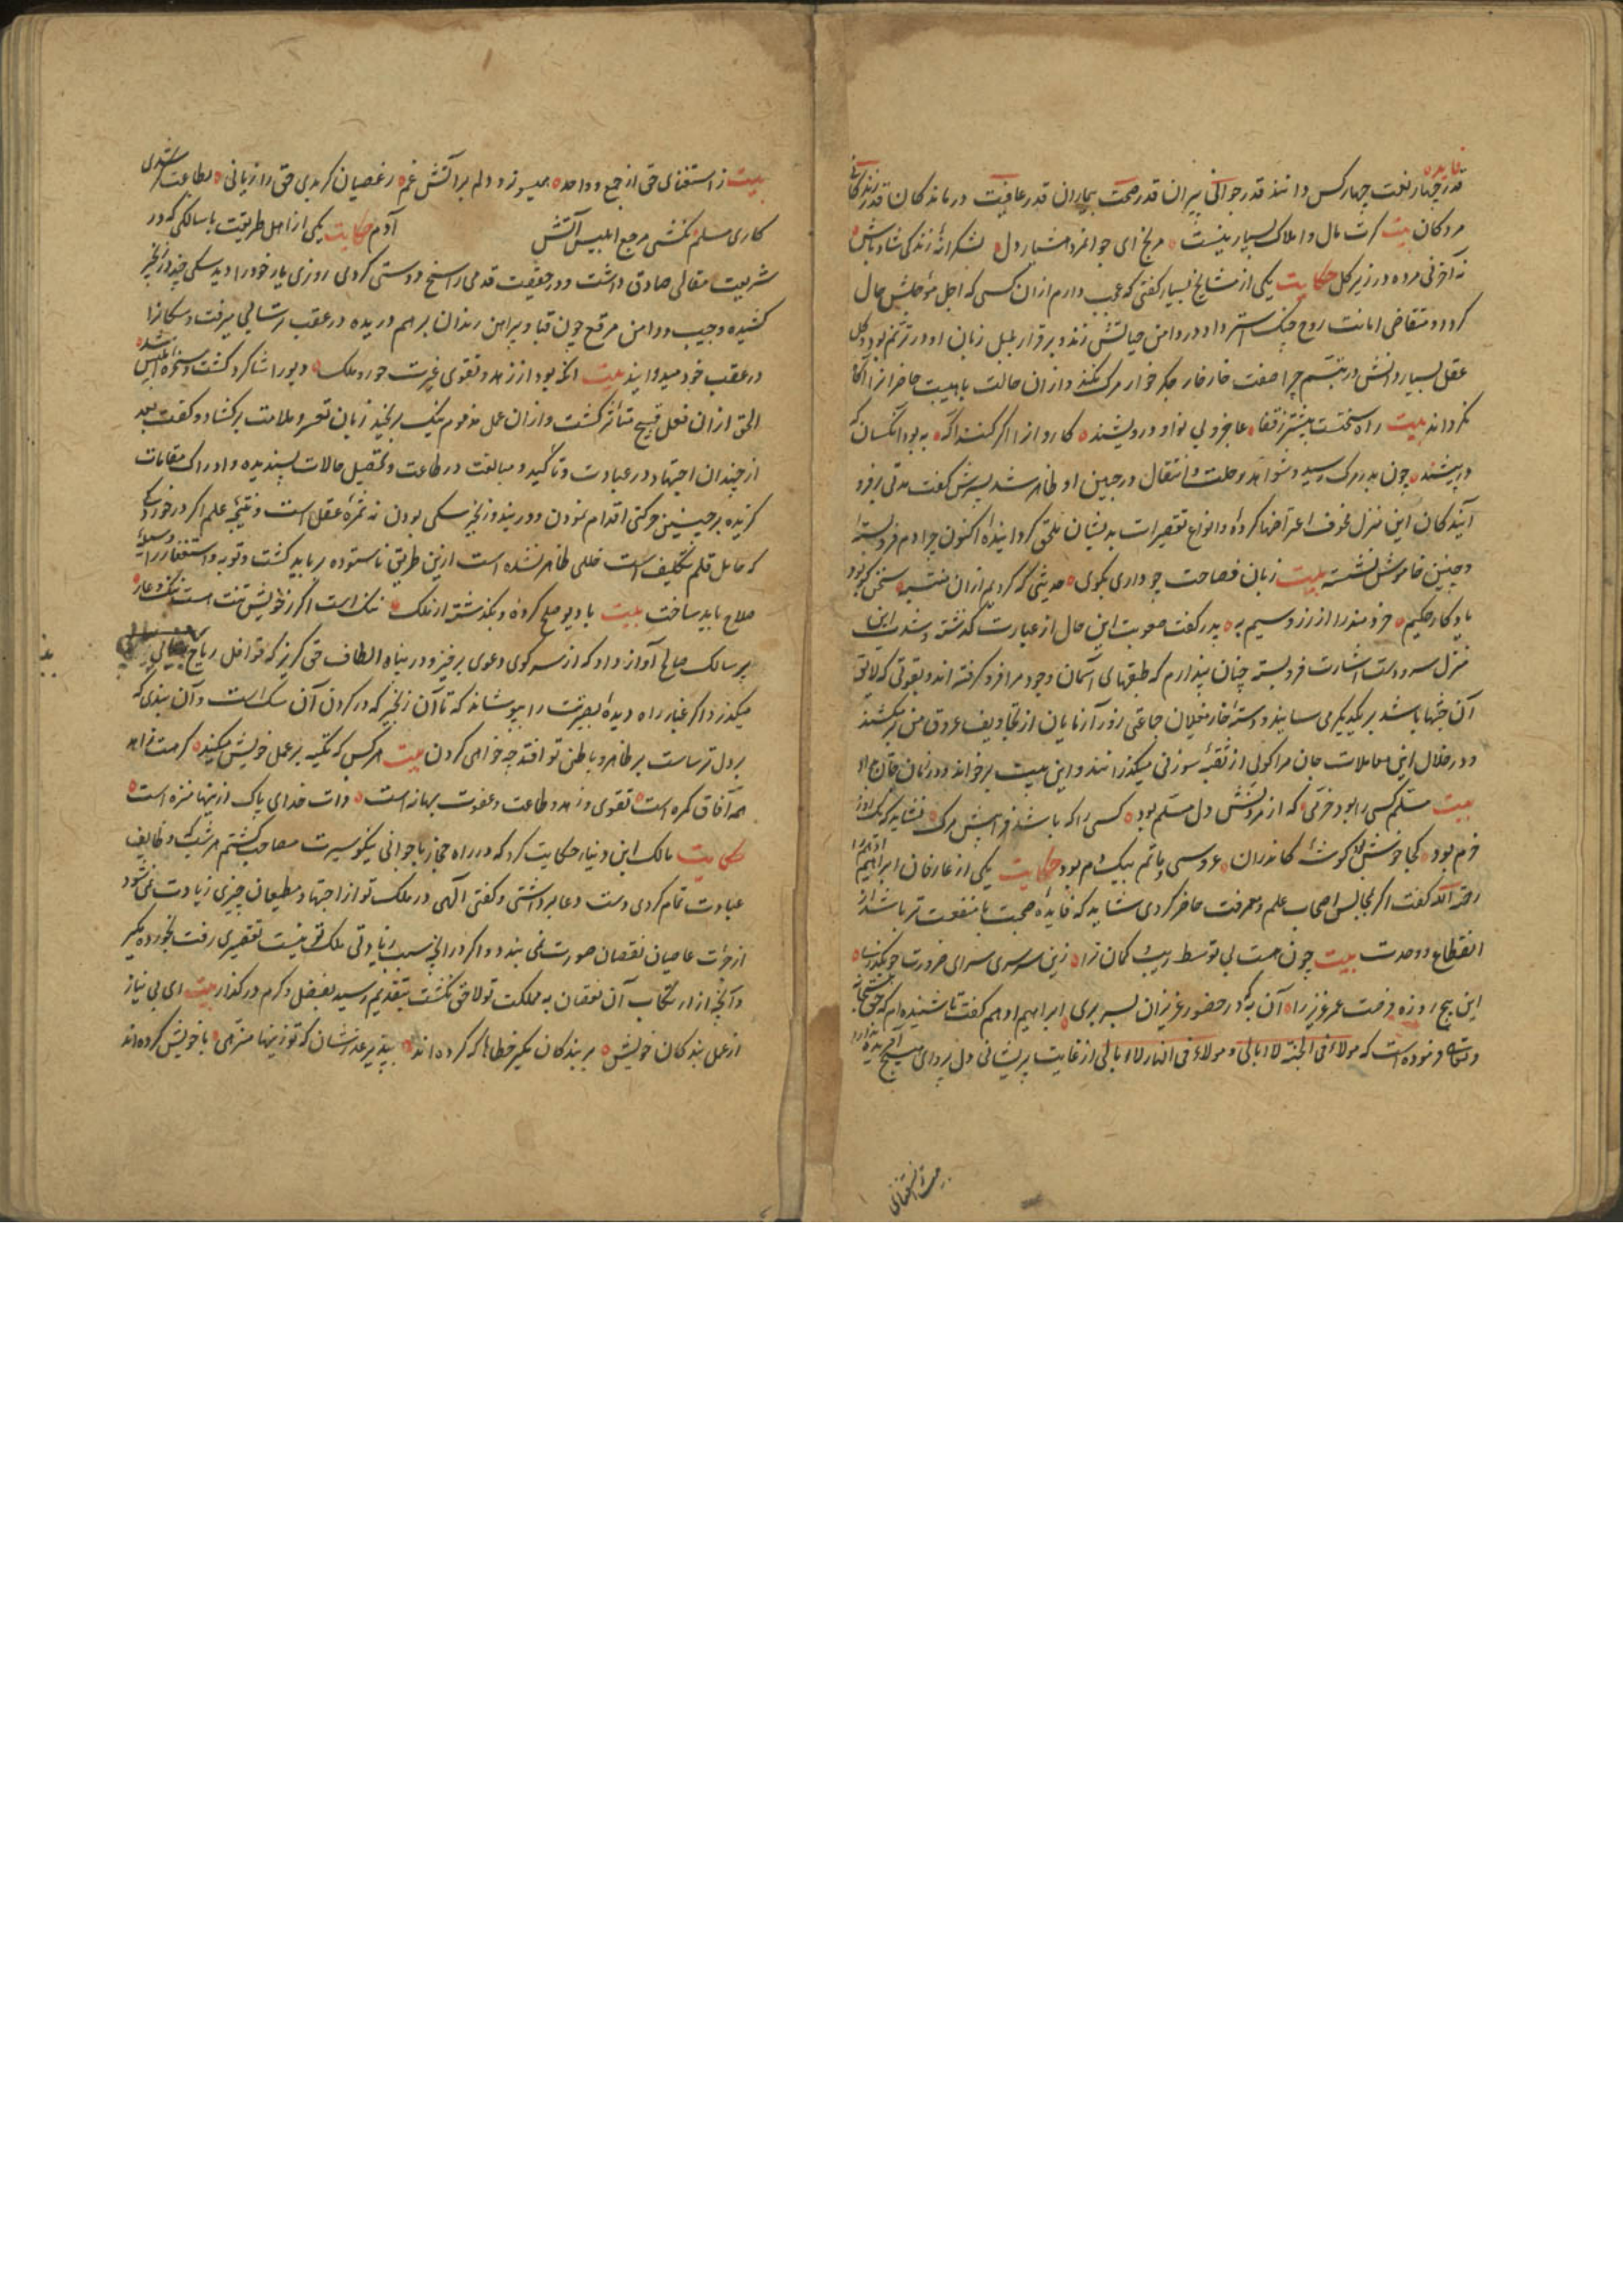 فایده
قدر چهار نعمت چهار کس دانند قدر جوانی پیران قدر صحت بیماران قدر عافیت درماندکان قدر زندکانی
مردکان بیت کرت مال و املاک بسیار نیست مرنج ای جوانمرد هشیار دل بشکرانهٔ زندکی شاد باش
نه آخر نی مرده در زیر کل حکایت یکی از مشایخ بسیار کفتی که عجب دارم از ان کسی که اجل حال
کردد و متقاضی امانت روح چنک استرداد در دامن حیاتش زند و برقرار بلبل زبان او در ترنم بود و کل
عقل بسیار دانش در تبسم چرا صفت خار خار جکر خوار مرک نکند و ازان حالت با هیبت حاضرانرا آکاه
نکرداند بیت راه سختست بیشتر ز قفا عاجز و بی نوا و درویشند کاروانرا اکر کنند آکه به بود آنکسان که
در پیشند چون پدر مرک رسید و شواهد رحلت و انتقال در جبین او ظاهر شد پسرش کفت مدتی بر فرو
آیندکان این منزل مخوف اعتراضها کردهٔ و انواع تقصیرات بدیشان ملحق کردانیدهٔ اکنون چرا دم فروبستهٔ
و چنین خاموش نشستهٔ بیت زبان فصاحت چو داری بکوی حدیثی که کردیم ازان سخن کز بود
یادکار حکیم خردمند را از زر و سیم به پدر کفت صعوبت این حال از عبارت کذشته و شدت این
منزل سر و دست اشارت فروبسته چنان پندارم که طبقهای آسمان وجود مرا فرو کرفته اند و بقوتی که لایق
آن باشد بر یکدیکر می سایند و دستهٔ خار مغیلان جماعتی زورآزمایان از تجاویف عروق من برمیکشند
و در خلال این معاملات جان مرا کوئی از ثقبهٔ سوزنی میکذرانند و این بیت برخواند و در زمان جان داد
بیت مسلم کسی را بود خرمی که از مردنش دل مسلم بود کسی را که باشد در پیش مرک نشاید که یک روز
خرم بود کجا خوش بود کوشهٔ کاندران عروسی و ماتم بیک دم بود حکایت یکی از عارفان ابراهیم ادهم را
رحمه الله کفت اکر بمجالس اصحاب علم و معرفت حاضر کردی شاید که فایدهٔ صحبت با منفعت تر باشد از
انقطاع و وحدت بیت چون هست بی توسط ریب و کمان ترا زین سرسری سرای ضرورت چو بکذری
این پنج روزه فرصت عمر عزیز را آن به که در حضور عزیزان بسر بری ابراهیم ادهم کفت تا شنیده ام که حق سبحانه
و تعالی فرموده است که هولاء فی الجنة لا ابالی و هولاء فی النار لا ابالی از غایت پریشانی دل پروای هیچ آفریده ندارد
بیت ز استغنای حق از جمع و واحد همیسوزد دلم بر آتش غم ز عصیان کر بدی حق را زیانی بطاعت کر شدی
کاری مسلم نکشتی مرجع ابلیس آتش آدم حکایت یکی از اهل طریقت با سالکی که در
شریعت مقالی صادق داشت و در حقیقت قدمی راسخ دوستی کردی روزی یار خود را دید سکی چند در زنجیر
کشیده و جیب و دامن مرقع چون قبا و پیراهن رندان بر هم دریده در عقب میرفت و سکانرا
در عقب خود میدوانید بیت آنکه بود از زهد و تقوی غیرت حور و ملک دیو را شاکرد کشت و سخرهٔ ابلیس شد
الحق ازان فعل قبیح متاثر کشت و ازان عمل مذموم نیک برنجید زبان تعسر و ملامت برکشاد و کفت بعد
از چندان اجتهاد در عبادت و تاکید و مبالغت در طاعت و تحصیل حالات پسندیده و ادراک مقامات
کزیده بر چنین حرکتی اقدام نمودن و در بند و زنجیر سکی بودن نه ثمرهٔ عقل است و نتیجهٔ علم اکر در خرد
که حامل قلم تکلیف است خللی ظاهر نشده است ازین طریق ناستوده بر باید کشت و توبه و استغفار را وسیلهٔ
صلاح باید ساخت بیت با دیو صلح کرده و بکذشته از ملک ننک است اکر ز خویش تنت است ننک و عار
پیر سالک صالح آواز داد که از سر کوی دعوی برخیز و در پناه الطاف حق کریز که قوافل ریاح
میکذرد اکر غبار راه دیدهٔ بصیرتت را بپوشاند که تا آن زنجیر که در کردن آن سک است و آن بندی که
بر دل ترساست بر ظاهر و باطن تو افتد چه خواهی کردن بیت هر کس که تکیه بر عمل خویش میکند کر مست زاهد
همه آفاق کمره است تقوی و زهد و طاعت و عفوت بهانه است ذات خدای پاک ازینها منزه است
حکایت مالک ابن دینار حکایت کرد که در راه حجاز با جوانی نیکو سیرت مصاحب کشتم هر شب که وظایف
عبادت تمام کردی دست دعا برداشتی و کفتی الهی در ملک تو از اجتهاد مطیعان چیزی زیادت نمی شود
از جرات عاصیان نقصان صورت نمی بندد و اکر در انچه سبب زیادتی ملک تو نیست تقصیری رفت بخورده مکیر
و آنچه از ارتکاب آن نقصان به مملکت تو لاحق نکشت بتقدیم رسید بفضل و کرم درکذار بیت ای بی نیاز
از عمل بندکان خویش بر بندکان مکیر خطاها که کرده اند بپذیر عذرشان که تو زینها منزهی با خویش کرده اند